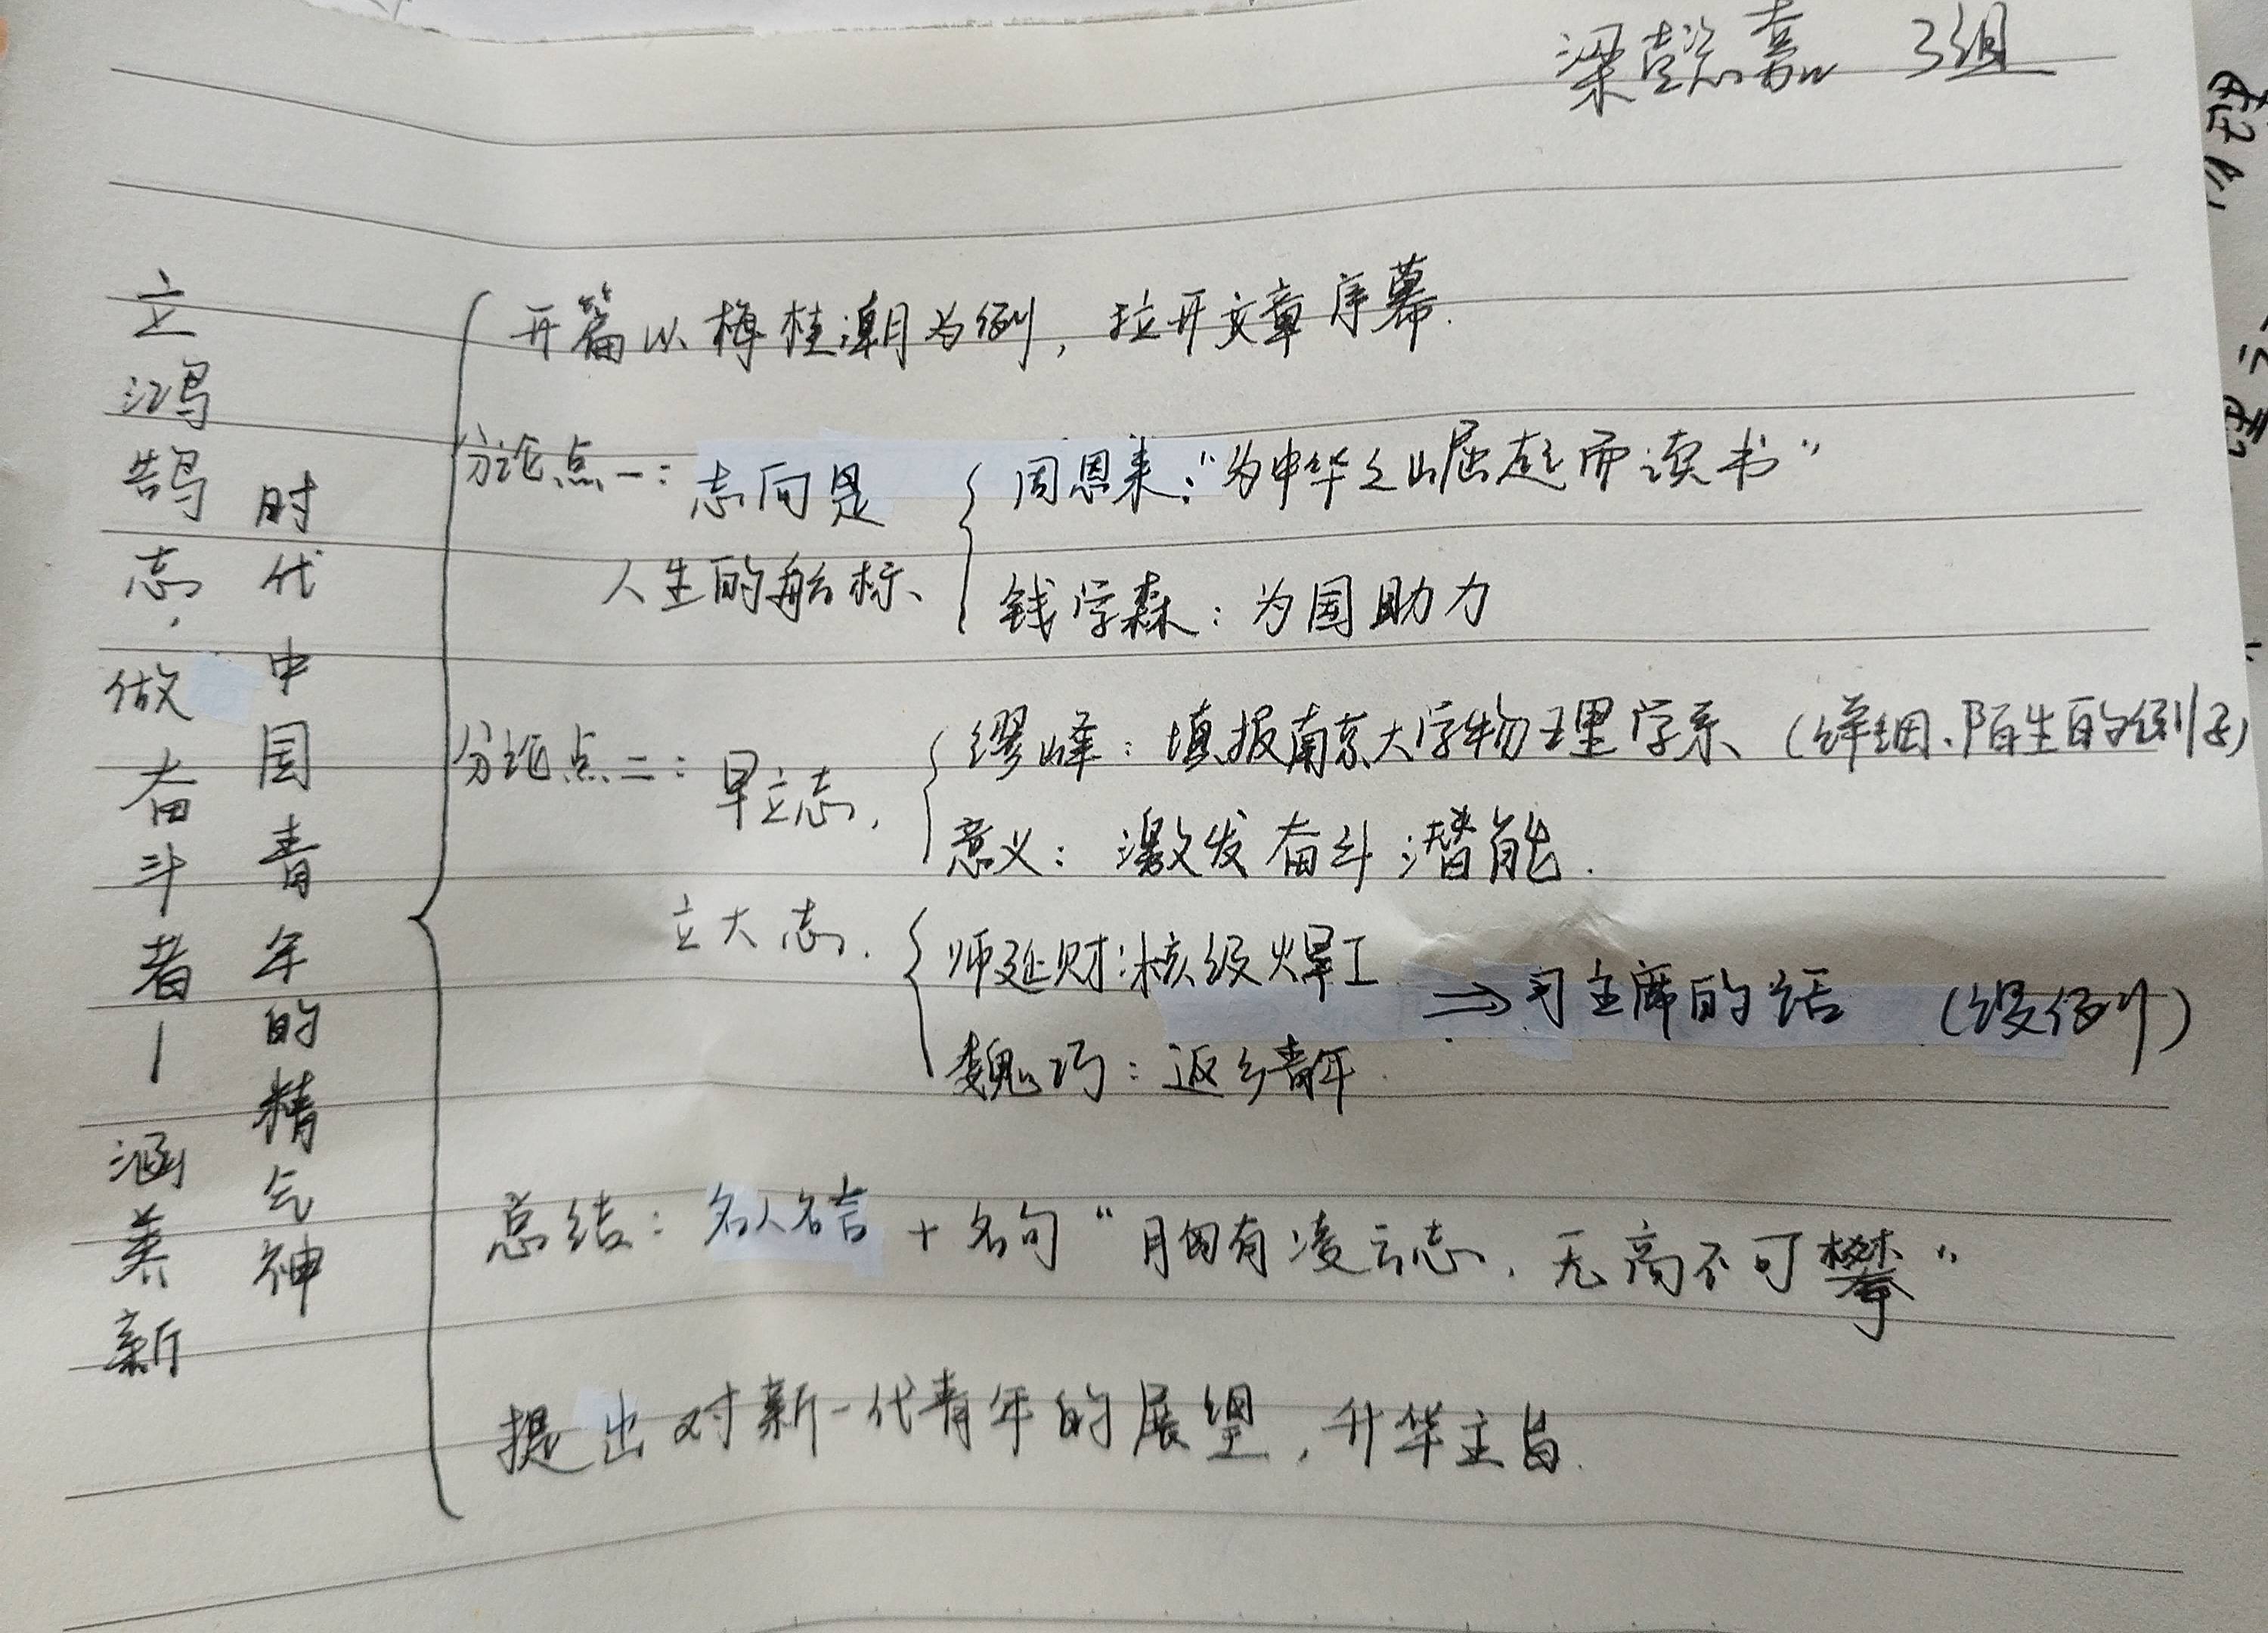 梁懿嘉 3组
立鸿鹄志，做奋斗者—涵养新
时代中国青年的精气神
开篇以梅桂潮为例，拉开文章序幕.
分论点一：志向是
人生的航标、
周恩来：“为中华之崛起而读书”
钱学森：为国助力
分论点二：早立志，
缪峰：填报南京大学物理学系（详细、陌生的例子）
意义：激发奋斗潜能.
立大志，
师延财：核级焊工
魏巧：返乡青年.
⇒习主席的话 （段例）
总结：名人名言+名句“胸有凌云志，无高不可攀”
提出对新一代青年的展望，升华主旨.